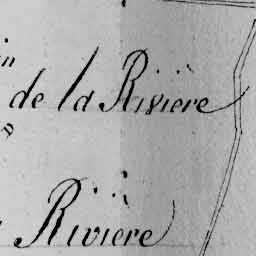 in
de la Riviere
s
Riviere